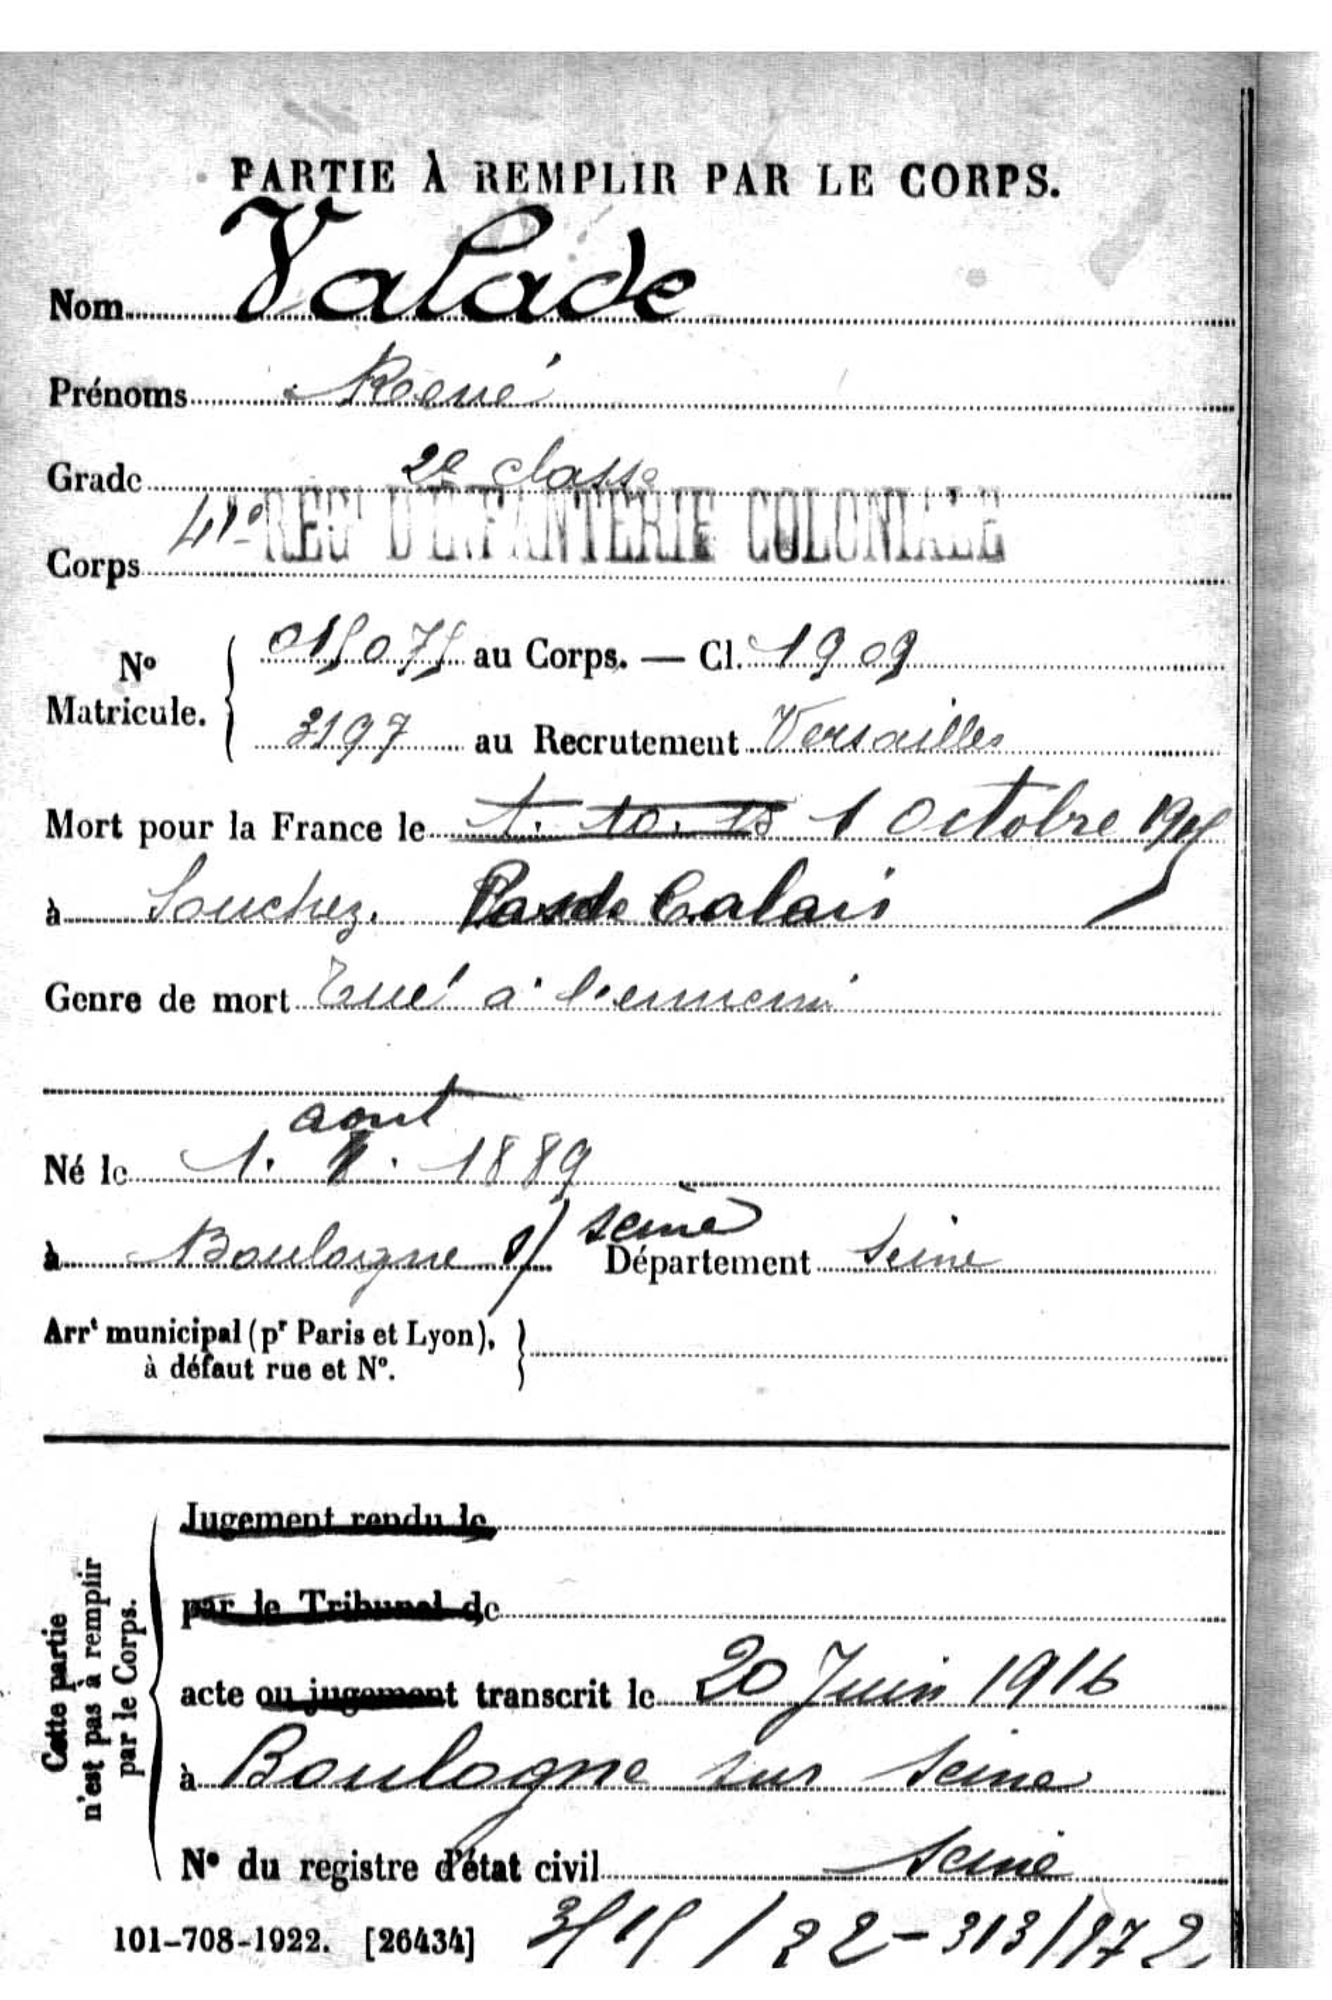 PARTIE À REMPLIR PAR LE CORPS.
Nom Valade
Prénoms René
Grade 2e classe
Corps 41e REGt D'INFANTERIE COLONIALE
No Matricule. { 015075 au Corps. — Cl. 1909
3197 au Recrutement Versailles
Mort pour la France le 1. 10. 15 1 Octobre 1915
à Souchez. Pas de Calais
Genre de mort Tué à l'ennemi
aout
Né le 1. 8. 1889
à Boulogne s/ seine Département Seine
Arrt municipal (pr Paris et Lyon), à défaut rue et No. }
Cette partie n'est pas à remplir par le Corps.
Jugement rendu le
par le Tribunal de
acte ou jugement transcrit le 20 Juin 1916
à Boulogne sur Seine
No du registre d'état civil Seine
101-708-1922. [26434] 3515/22-313/872